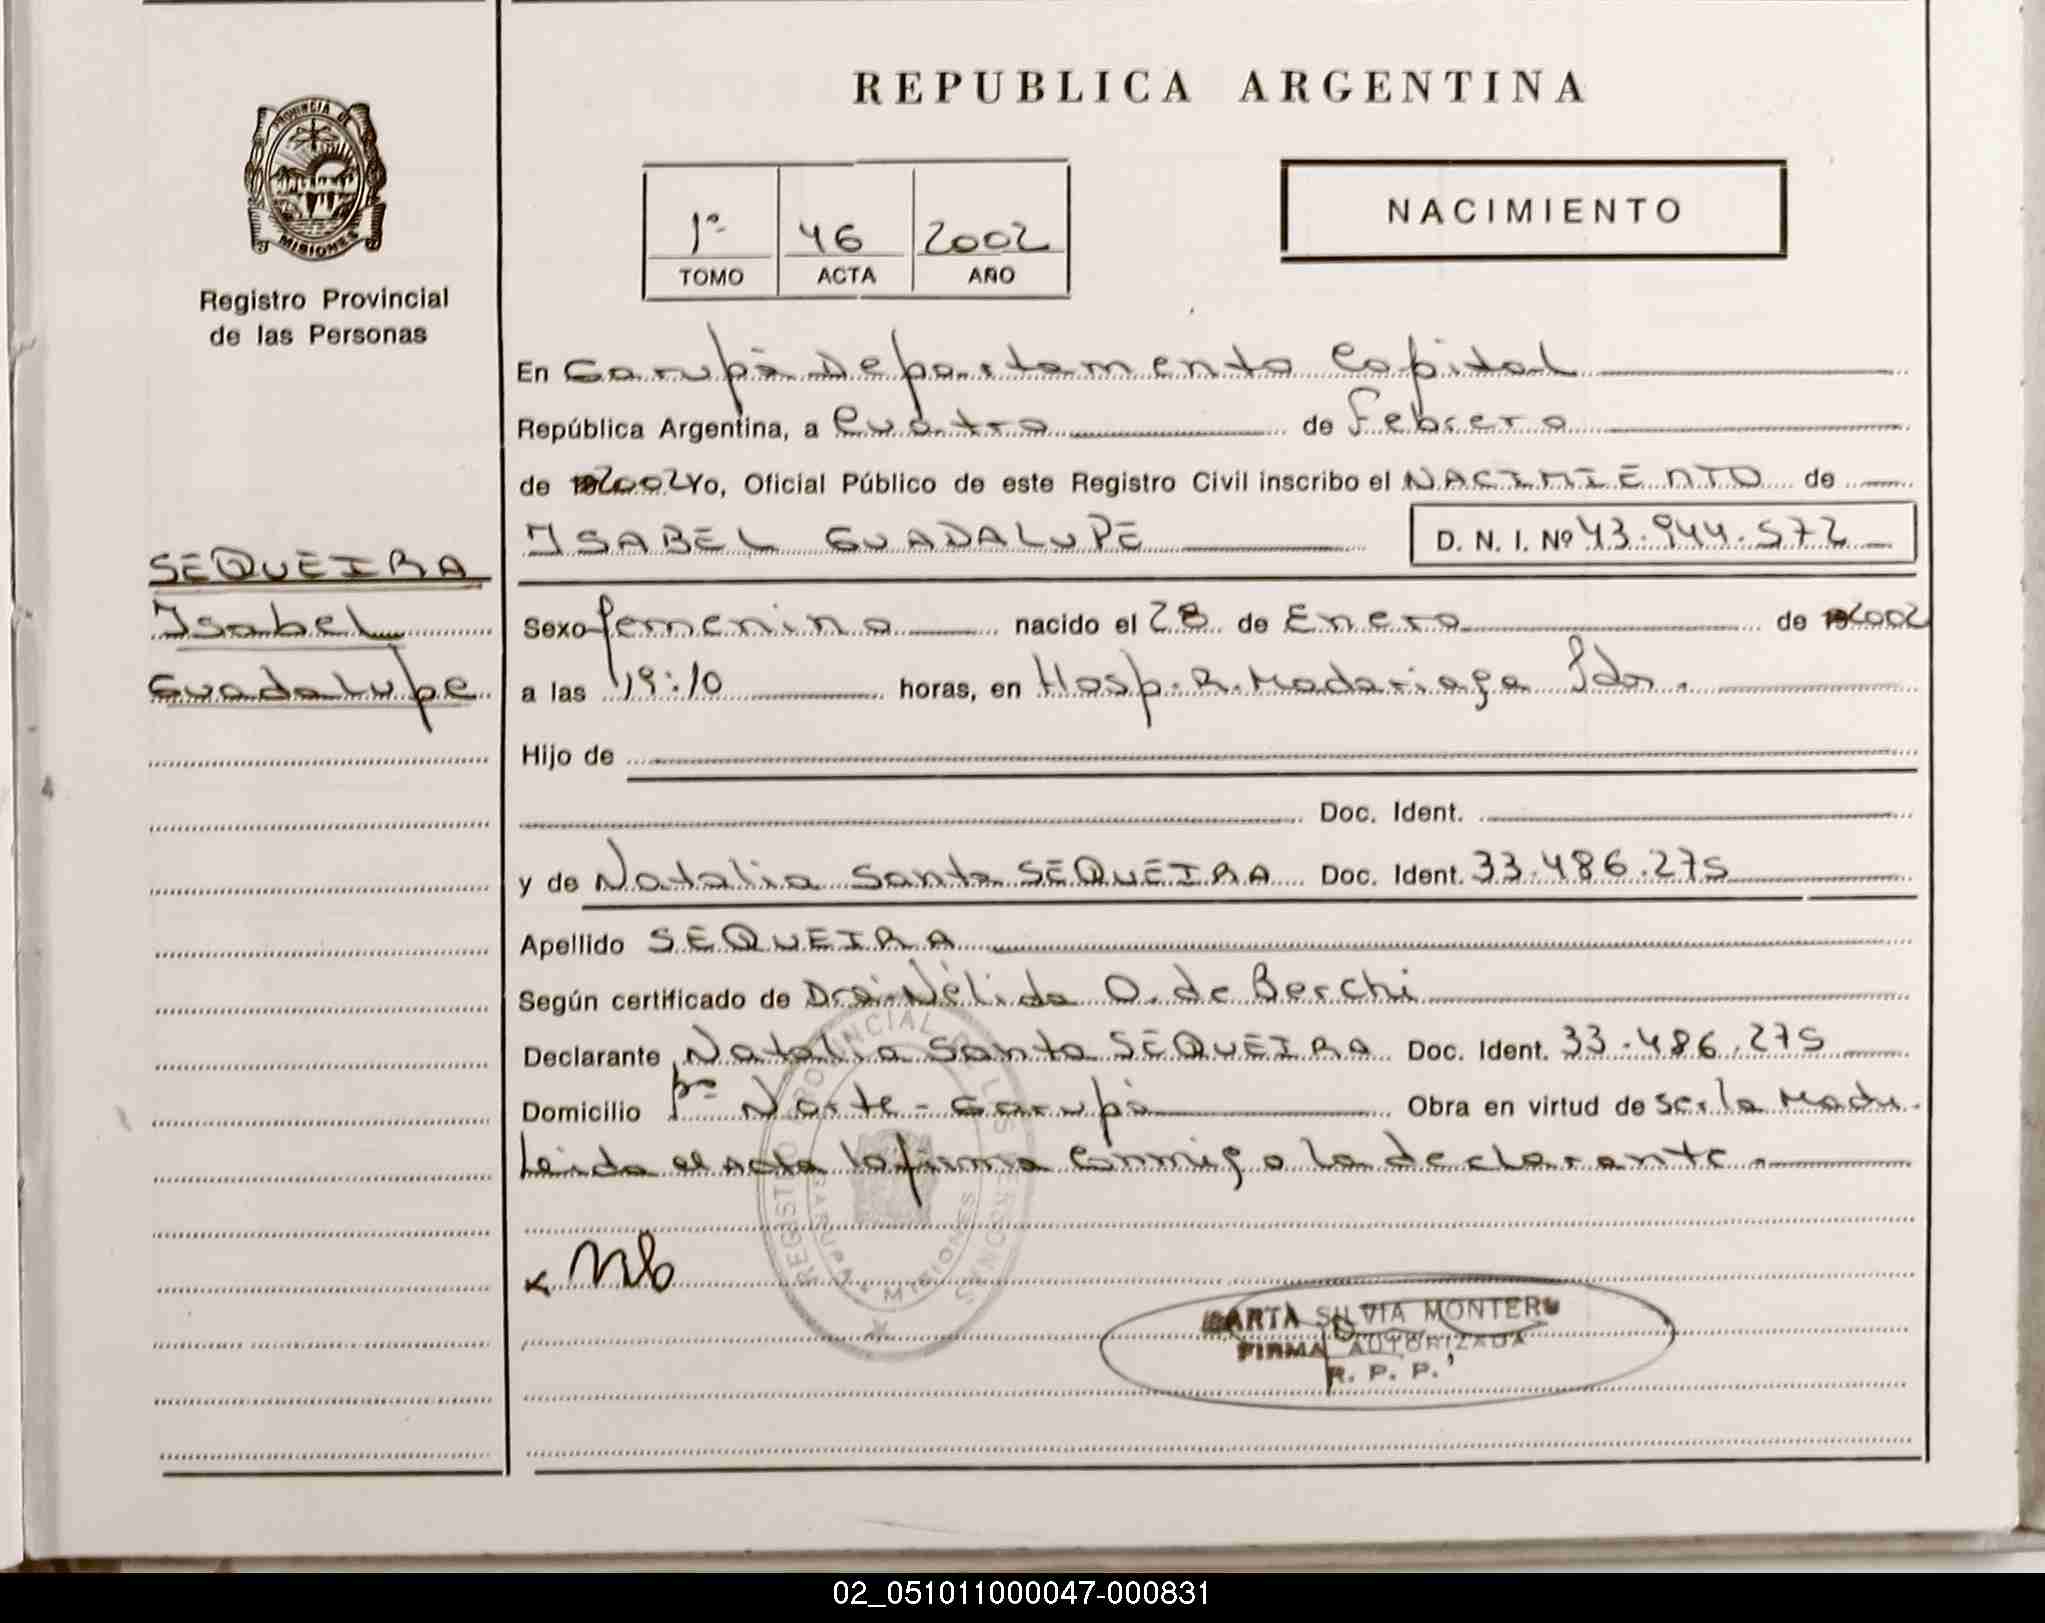 REPUBLICA ARGENTINA
PROVINCIA DE
MISIONES
Registro Provincial
de las Personas
1º 46 2002
TOMO ACTA AÑO
NACIMIENTO
En Garupá Departamento Capital
República Argentina, a Cuatro de Febrero
de 2002 Yo, Oficial Público de este Registro Civil inscribo el NACIMIENTO de
ISABEL GUADALUPE D. N. I. Nº 43.944.572
SEQUEIRA
Isabel
Guadalupe
Sexo femenino nacido el 28 de Enero de 2002
a las 19:10 horas, en Hosp. R. Madariaga Pdas.
Hijo de
Doc. Ident.
y de Natalia Santa SEQUEIRA Doc. Ident. 33.486.275
Apellido SEQUEIRA
Según certificado de Dra. Nélida O. de Berchi
Declarante Natalia Santa SEQUEIRA Doc. Ident. 33.486.275
Domicilio Bº Norte - Garupá Obra en virtud de ser la Madre.
Leida el Acta la firma conmigo la declarante.
REGISTRO PROVINCIAL DE LAS PERSONAS
GARUPA MISIONES
MARTA SILVIA MONTERO
FIRMA AUTORIZADA
R. P. P.
02_051011000047-000831